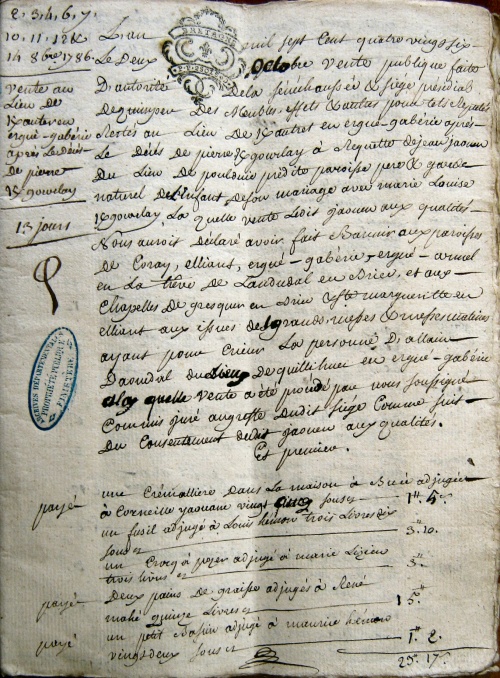 2. 3. 4. 6. 7.
10. 11. 12 &
14. 8bre 1786.
vente au
Lieu De
Kautret en
ergué-gabéric
après Le Décès
De pierre
Kgourlay
13 jours
BRETAGNE
ARCHIVES DÉPARTEMENTALES
PROPRIÉTÉ PUBLIQUE
FINISTÈRE
L'an mil sept Cent quatre vingt six
Le Deux octobre vente publique faite
D'autorité De la senechaussée & siége présidial
De quimper Des Meubles, effets & autres pour tels Reputés
Restés au Lieu De Kautret en ergue-gaberic après
Le Décès De pierre Kgourlay à Requette De jean jaouen
Du Lieu De poulduic prédite paroisse pere & garde
naturel De L'enfant De son mariage avec marie Louise
Kgourlay. La quelle vente Ledit jaouen aux qualités
Nous auroit Déclaré avoir fait Bannir aux paroisses
De Coray, elliant, ergué-gaberic, ergué-armel
en La trêve De Landudal en Briec, et aux
Chapelles De quen en Briec & Ste marguerite en
elliant aux issues des grandes messes & messes matines
ayant pour Crieur La personne D'allain
Daoudal du Lieu De quillihuec en ergué-gabéric
a la quelle vente a été procédé par nous soussigné
Commis juré au greffe dudit siége Comme suit
Du Consentement dudit jaouen aux qualités.
Et premier.
une Crémalliere Dans La maison à Buée adjugée
à Corneille yaouanc vingt cinq sous 1# 5s
payé
un fusil adjugé à Louis hémon trois Livres dix
sous 3. 10.
un Crocq à pezer adjugé à marie Lizien
trois Livres 3#
Deux pains de graisse adjugés à René
mahé quinze Livres 15#
payé
un petit Bassin adjugé à maurice hémon
vingt deux sous 1# 2.
payé